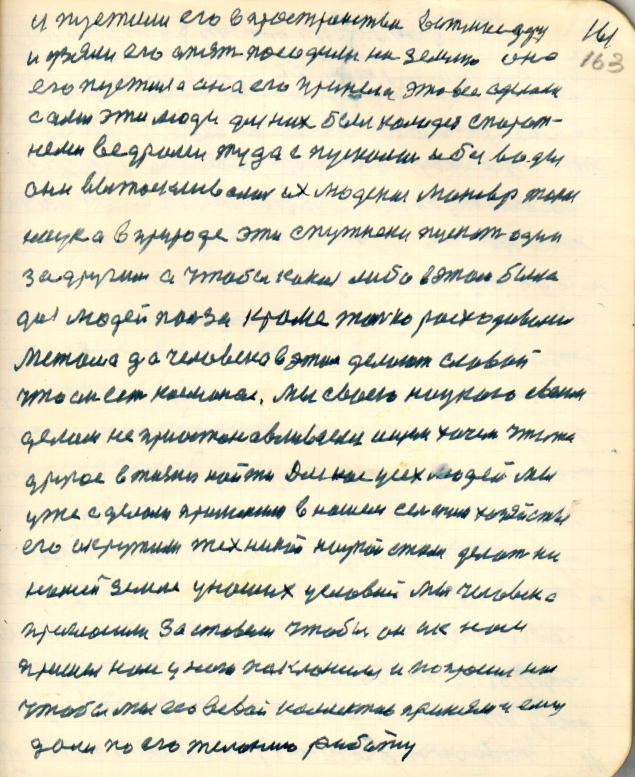 и пустили его в пространства
161
163
и взяли его опят посадили на землю оно
его пустила она его приняла это все сделали
сами эти люди для них был колодез с порож-
неми ведрами туда спускали абы воды
они вытаскивали их людской маневр такая
наука в природе эти спутнеки пускат один
за другим а чтобы какая либо в этом была
для людей полза кроме толко расходавали
метала да человека в этом делают славой
что он сет космонал. Мы своею наукаю своим
делам не приостонавливаемся ищем хочем чтото
другое в жизни найти Для нас усех людей мы
уже сделали применили в нашем селском хозяйстви
его окружили техникай наукай стали делат на
нашей земле у наших условий мы человека
применили заставели чтобы он ик нам
пришел нам низко поклонился и попросил нас
чтобы мы его в свой колектив приняли и ему
дали по его желанию работу